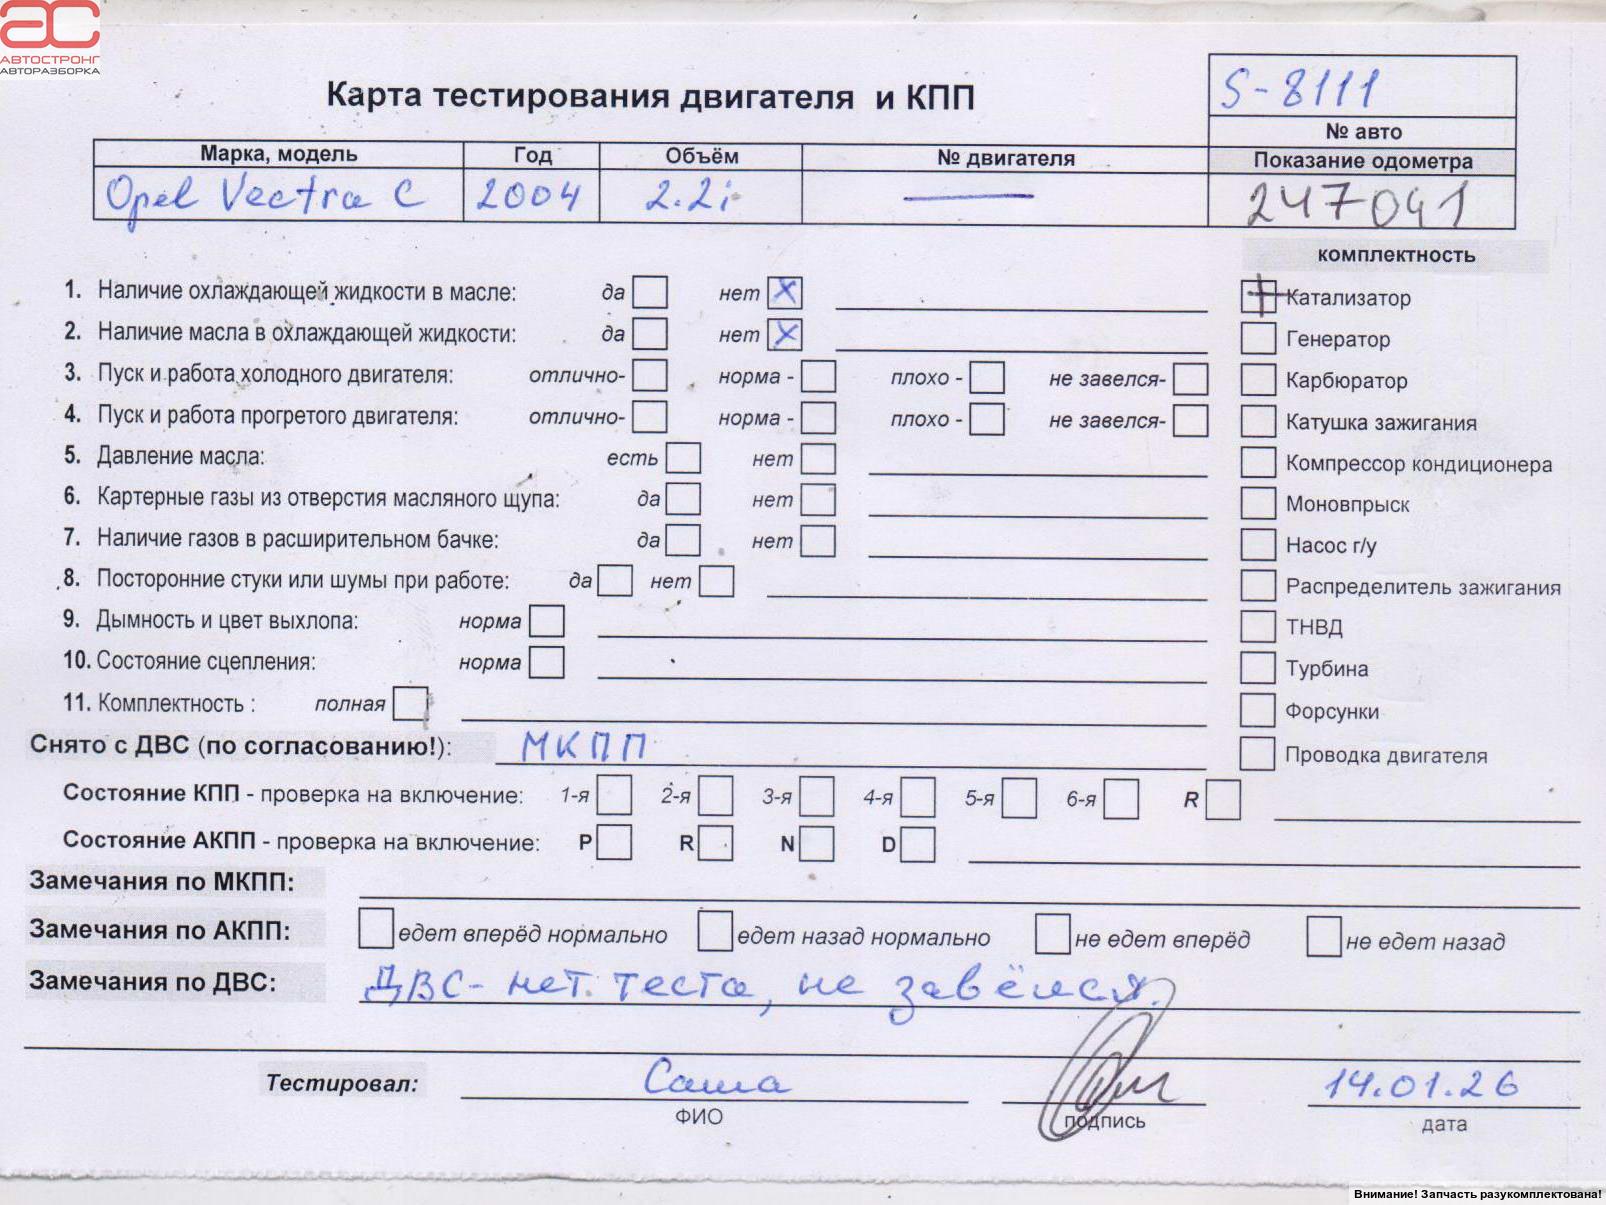 АС
АВТОСТРОНГ
АВТОРАЗБОРКА
Карта тестирования двигателя и КПП
S-8111
№ авто
Марка, модель Год Объём № двигателя Показание одометра
Opel Vectra C 2004 2.2i — 247041
комплектность
1. Наличие охлаждающей жидкости в масле: да нет X
Катализатор
2. Наличие масла в охлаждающей жидкости: да нет X
Генератор
3. Пуск и работа холодного двигателя: отлично- норма - плохо - не завелся-
Карбюратор
4. Пуск и работа прогретого двигателя: отлично- норма - плохо - не завелся-
Катушка зажигания
5. Давление масла: есть нет
Компрессор кондиционера
6. Картерные газы из отверстия масляного щупа: да нет
Моновпрыск
7. Наличие газов в расширительном бачке: да нет
Насос г/у
8. Посторонние стуки или шумы при работе: да нет
Распределитель зажигания
9. Дымность и цвет выхлопа: норма
ТНВД
10. Состояние сцепления: норма
Турбина
11. Комплектность : полная
Форсунки
Снято с ДВС (по согласованию!): МКПП
Проводка двигателя
Состояние КПП - проверка на включение: 1-я 2-я 3-я 4-я 5-я 6-я R
Состояние АКПП - проверка на включение: P R N D
Замечания по МКПП:
Замечания по АКПП: едет вперёд нормально едет назад нормально не едет вперёд не едет назад
Замечания по ДВС: ДВС- нет теста, не завёлся.
Тестировал: Саша 14.01.26
ФИО подпись дата
Внимание! Запчасть разукомплектована!